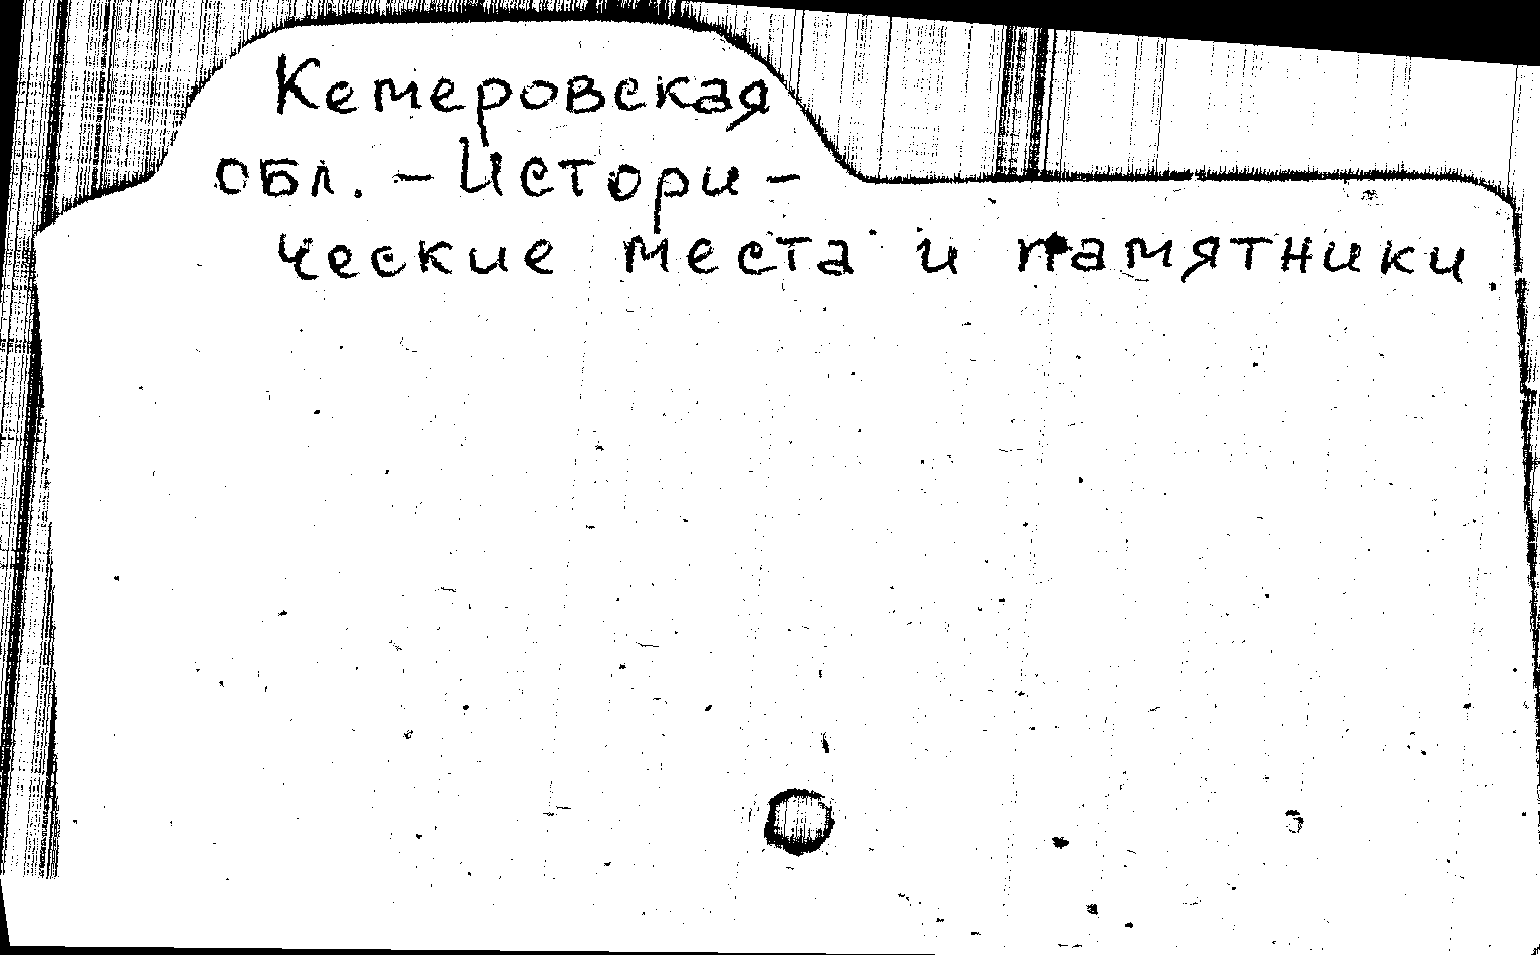 Кемеровская
обл. - Истори -
ческие места и памятники